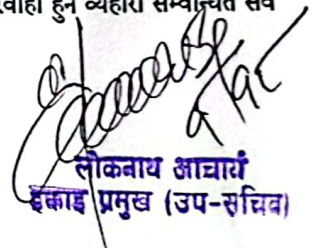 हुन व्यहोरा सम्वान्धित सर्व
लोकनाथ आचार्य
इकाइ प्रमुख (उप-सचिव)